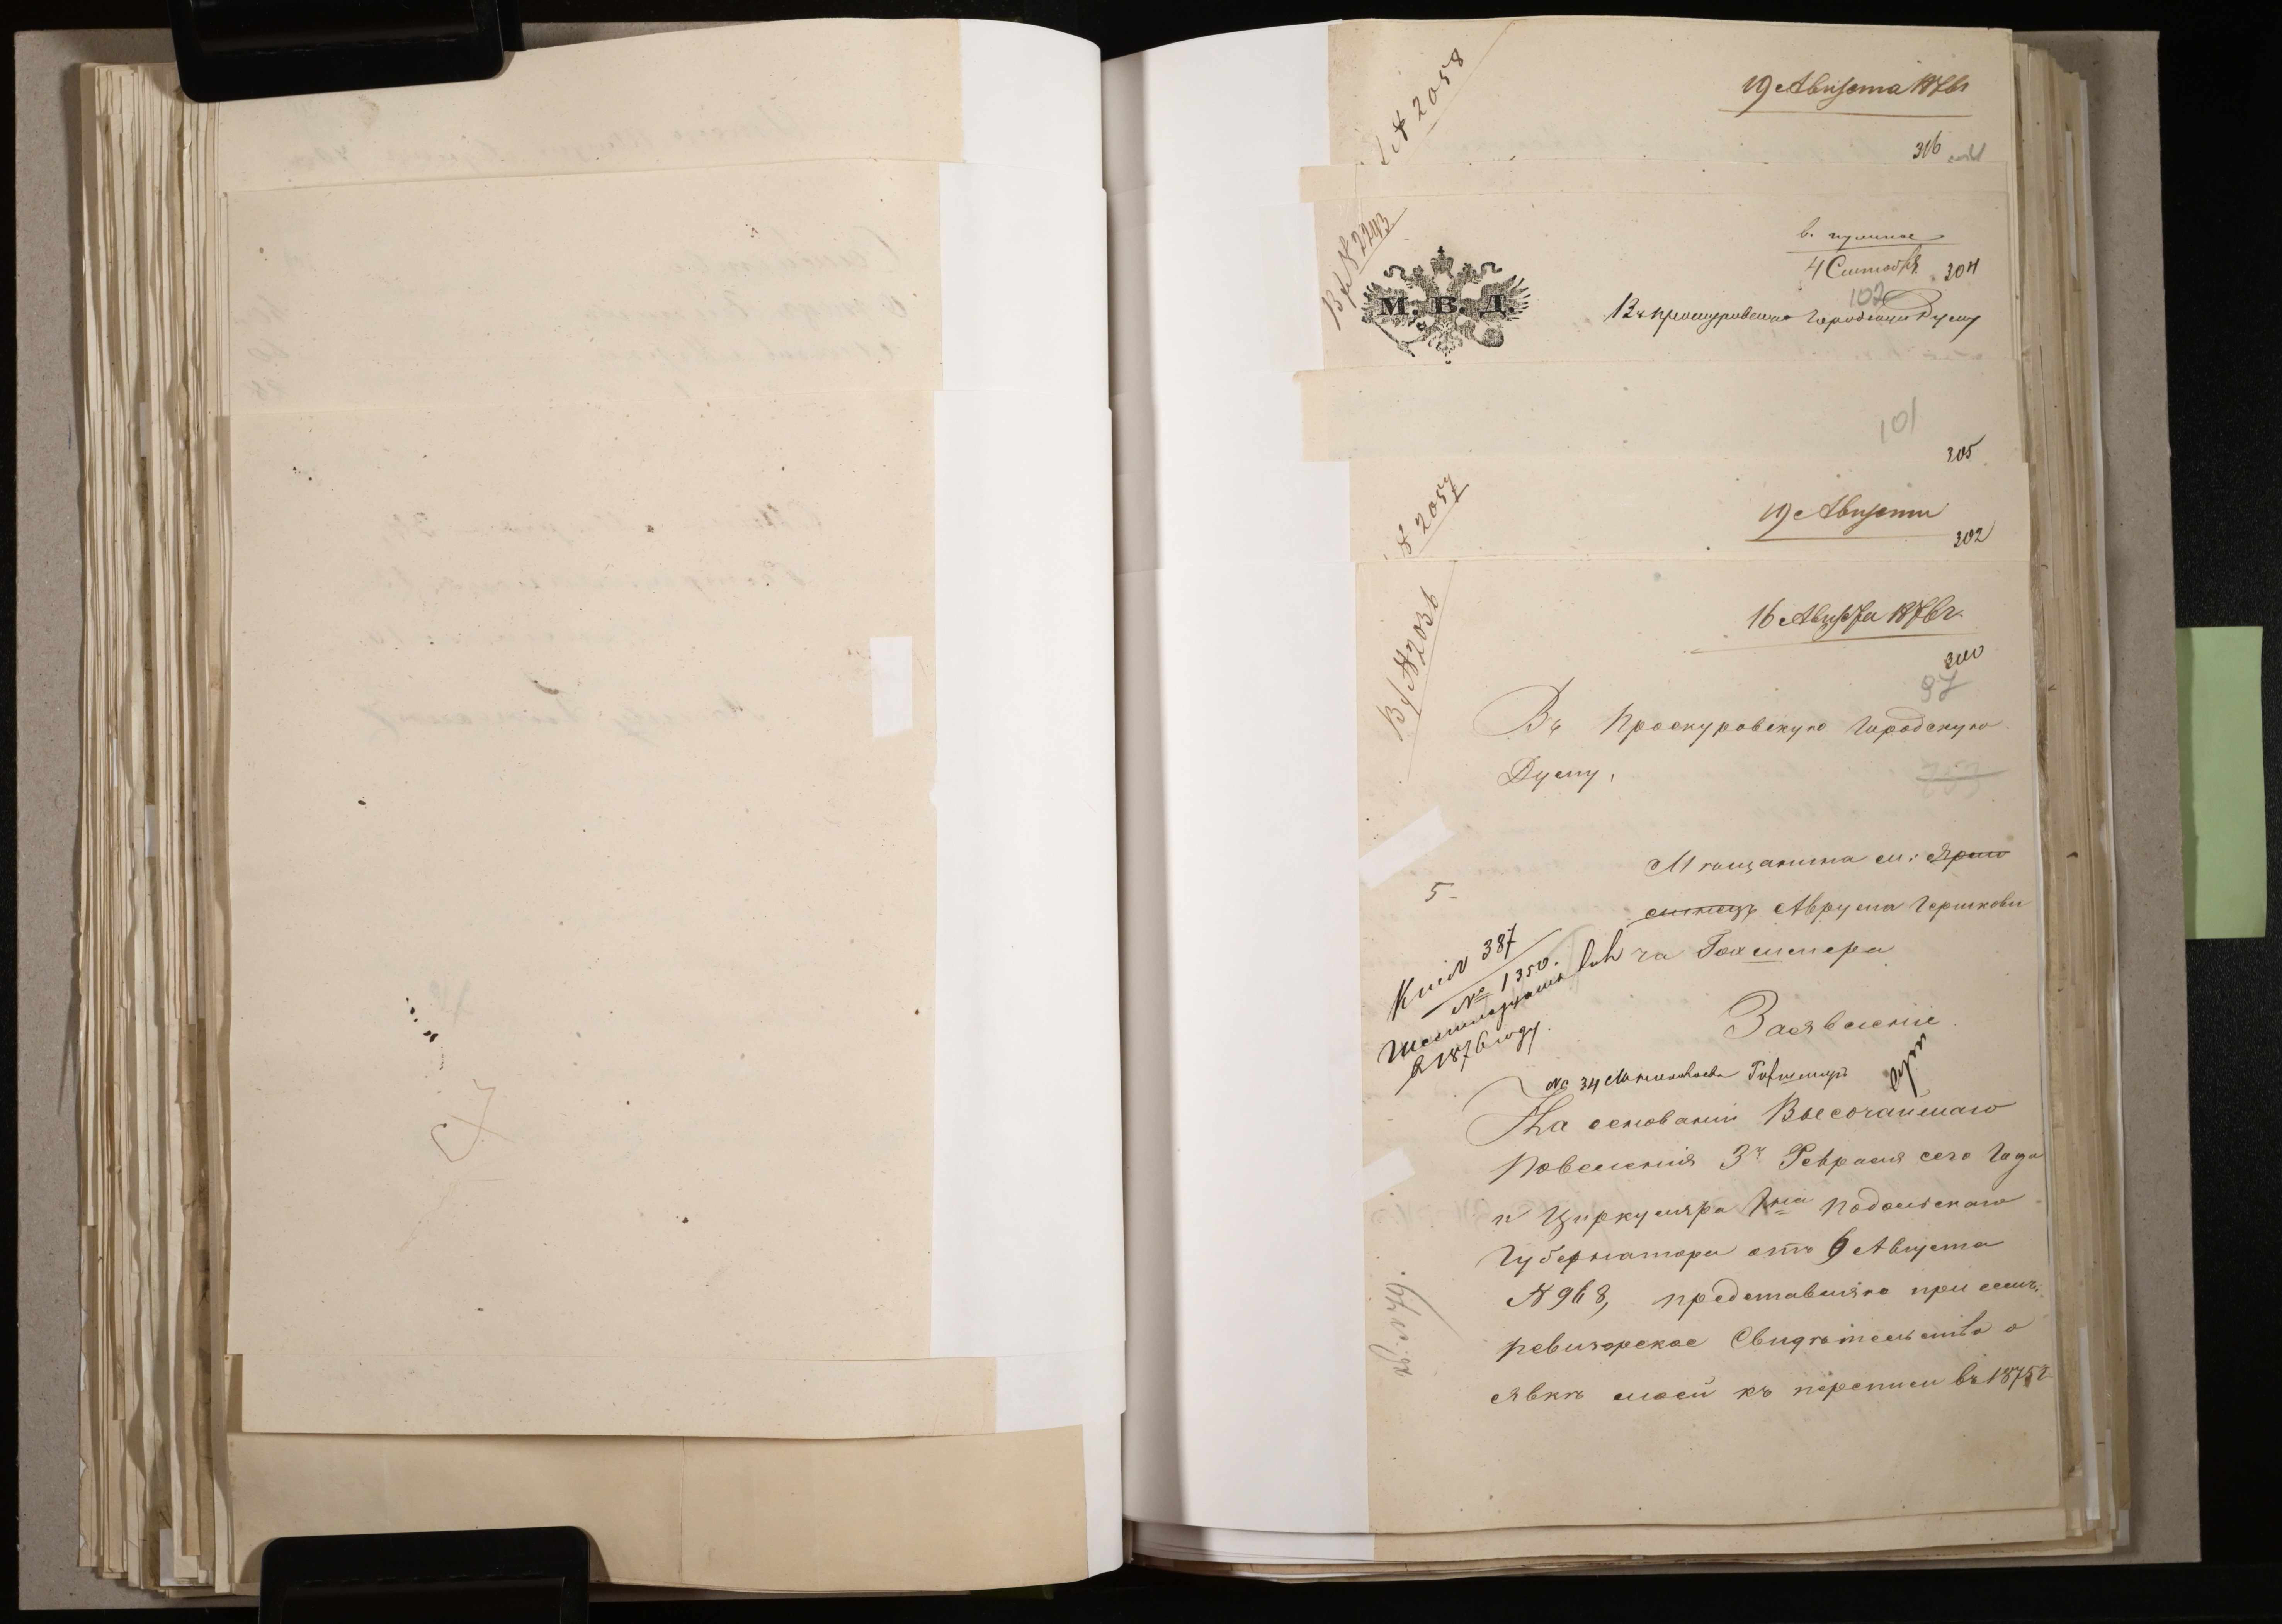 № 2058
19 Августа 1876 г
306
Вх № 2243
М. В. Д.
4 Сентября
304
102
Въ Проскуровскую Городскую Думу
101
305
№ 2057
19 Августа
302
Вх № 2036
16 Августа 1876 г.
300
97
Въ Проскуровскую Городскую
Думу,
Мѣщанина м: Ярмо
линецъ Аврума Гершкови
ча Гохштера
5
№ 387
№ 1350.
в 1876 году.
Заявленіе
№ 34
На основаніи Высочайшаго
Повеленія 3го Февраля сего Года
и Циркуляра Гна Подольскаго
Губернатора отъ 6 Августа
№ 968, представляю при семъ
ревизорское Свидѣтельство о
явкѣ моей къ переписи въ 1875 г